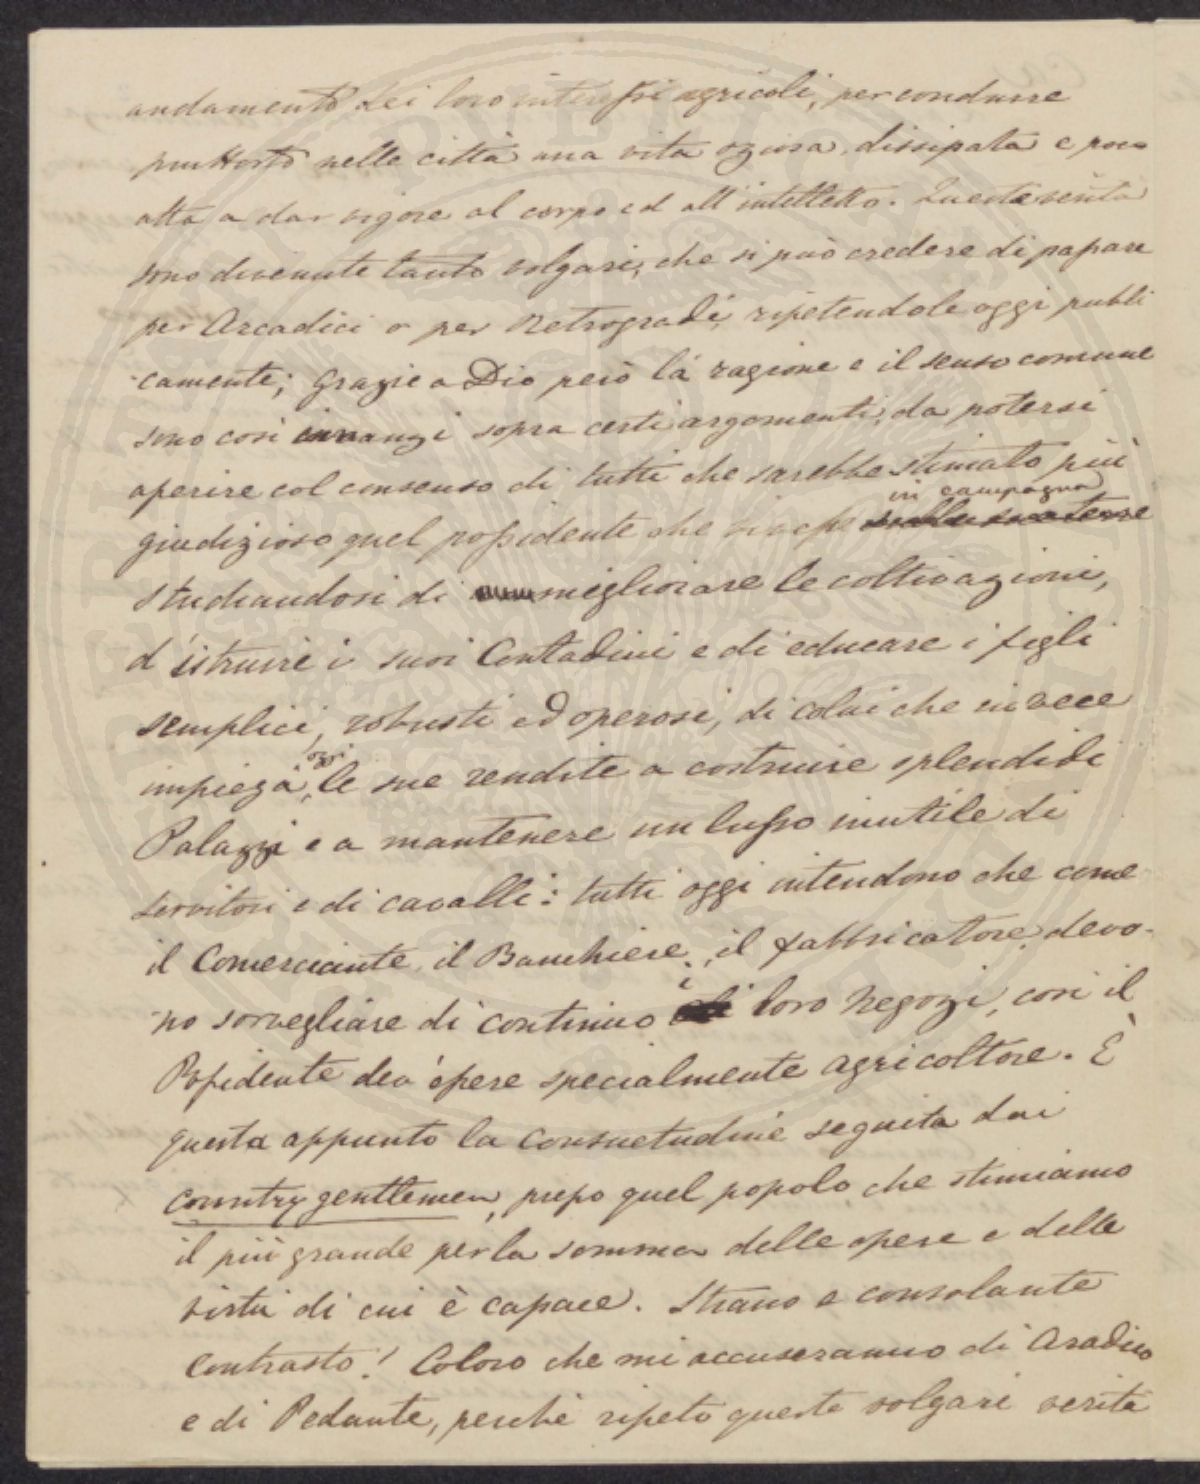 andamento dei loro interessi agricoli, per condurre
piuttosto nelle città una vita oziosa, dissipata e poco
atta a dar vigore al corpo ed all'intelletto. Queste verità
sono divenute tanto volgari, che si può credere di passare
per Arcadici o per Retrogradi, ripetendole oggi pubbli
camente; grazie a Dio però la ragione e il senso comune
sono così innanzi sopra certi argomenti, da potersi
aperire col consenso di tutti che sarebbe stimato più
in campagna
giudizioso quel possidente che vivesse sulle sue terre
studiandosi di migliorare le coltivazioni,
d'istruire i suoi Contadini e di educare i figli
semplici, robusti ed operosi, di colui che invece
oggi
impiega, le sue rendite a costruire splendidi
Palazzi e a mantenere un lusso inutile di
servitori e di cavalli: tutti oggi intendono che come
il Comerciante, il Banchiere, il fabbricatore devo-
i
no sorvegliare di continuo loro negozi, così il
Possidente dev'essere specialmente agricoltore. È
questa appunto la consuetudine seguita dai
country gentlemen, presso quel popolo che stimiamo
il più grande per la somma delle opere e delle
virtù di cui è capace. Strano e consolante
contrasto! Coloro che mi accuseranno di Aradico
e di Pedante, perchè ripeto queste volgari verità